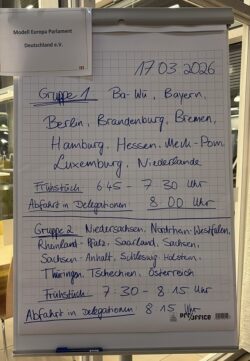 Modell Europa Parlament
Deutschland e.V.
17.03.2026
Gruppe 1 Ba-Wü, Bayern,
Berlin, Brandenburg, Bremen,
Hamburg, Hessen, Meck-Pom,
Luxemburg, Niederlande
Frühstück 6:45 - 7:30 Uhr
Abfahrt in Delegationen 8:00 Uhr
Gruppe 2 Niedersachsen, Nordrhein-Westfalen,
Rheinland-Pfalz, Saarland, Sachsen,
Sachsen-Anhalt, Schleswig-Holstein,
Thüringen, Tschechien, Österreich
Frühstück 7:30 - 8:15 Uhr
Abfahrt in Delegationen 8:15 Uhr
OFFICE